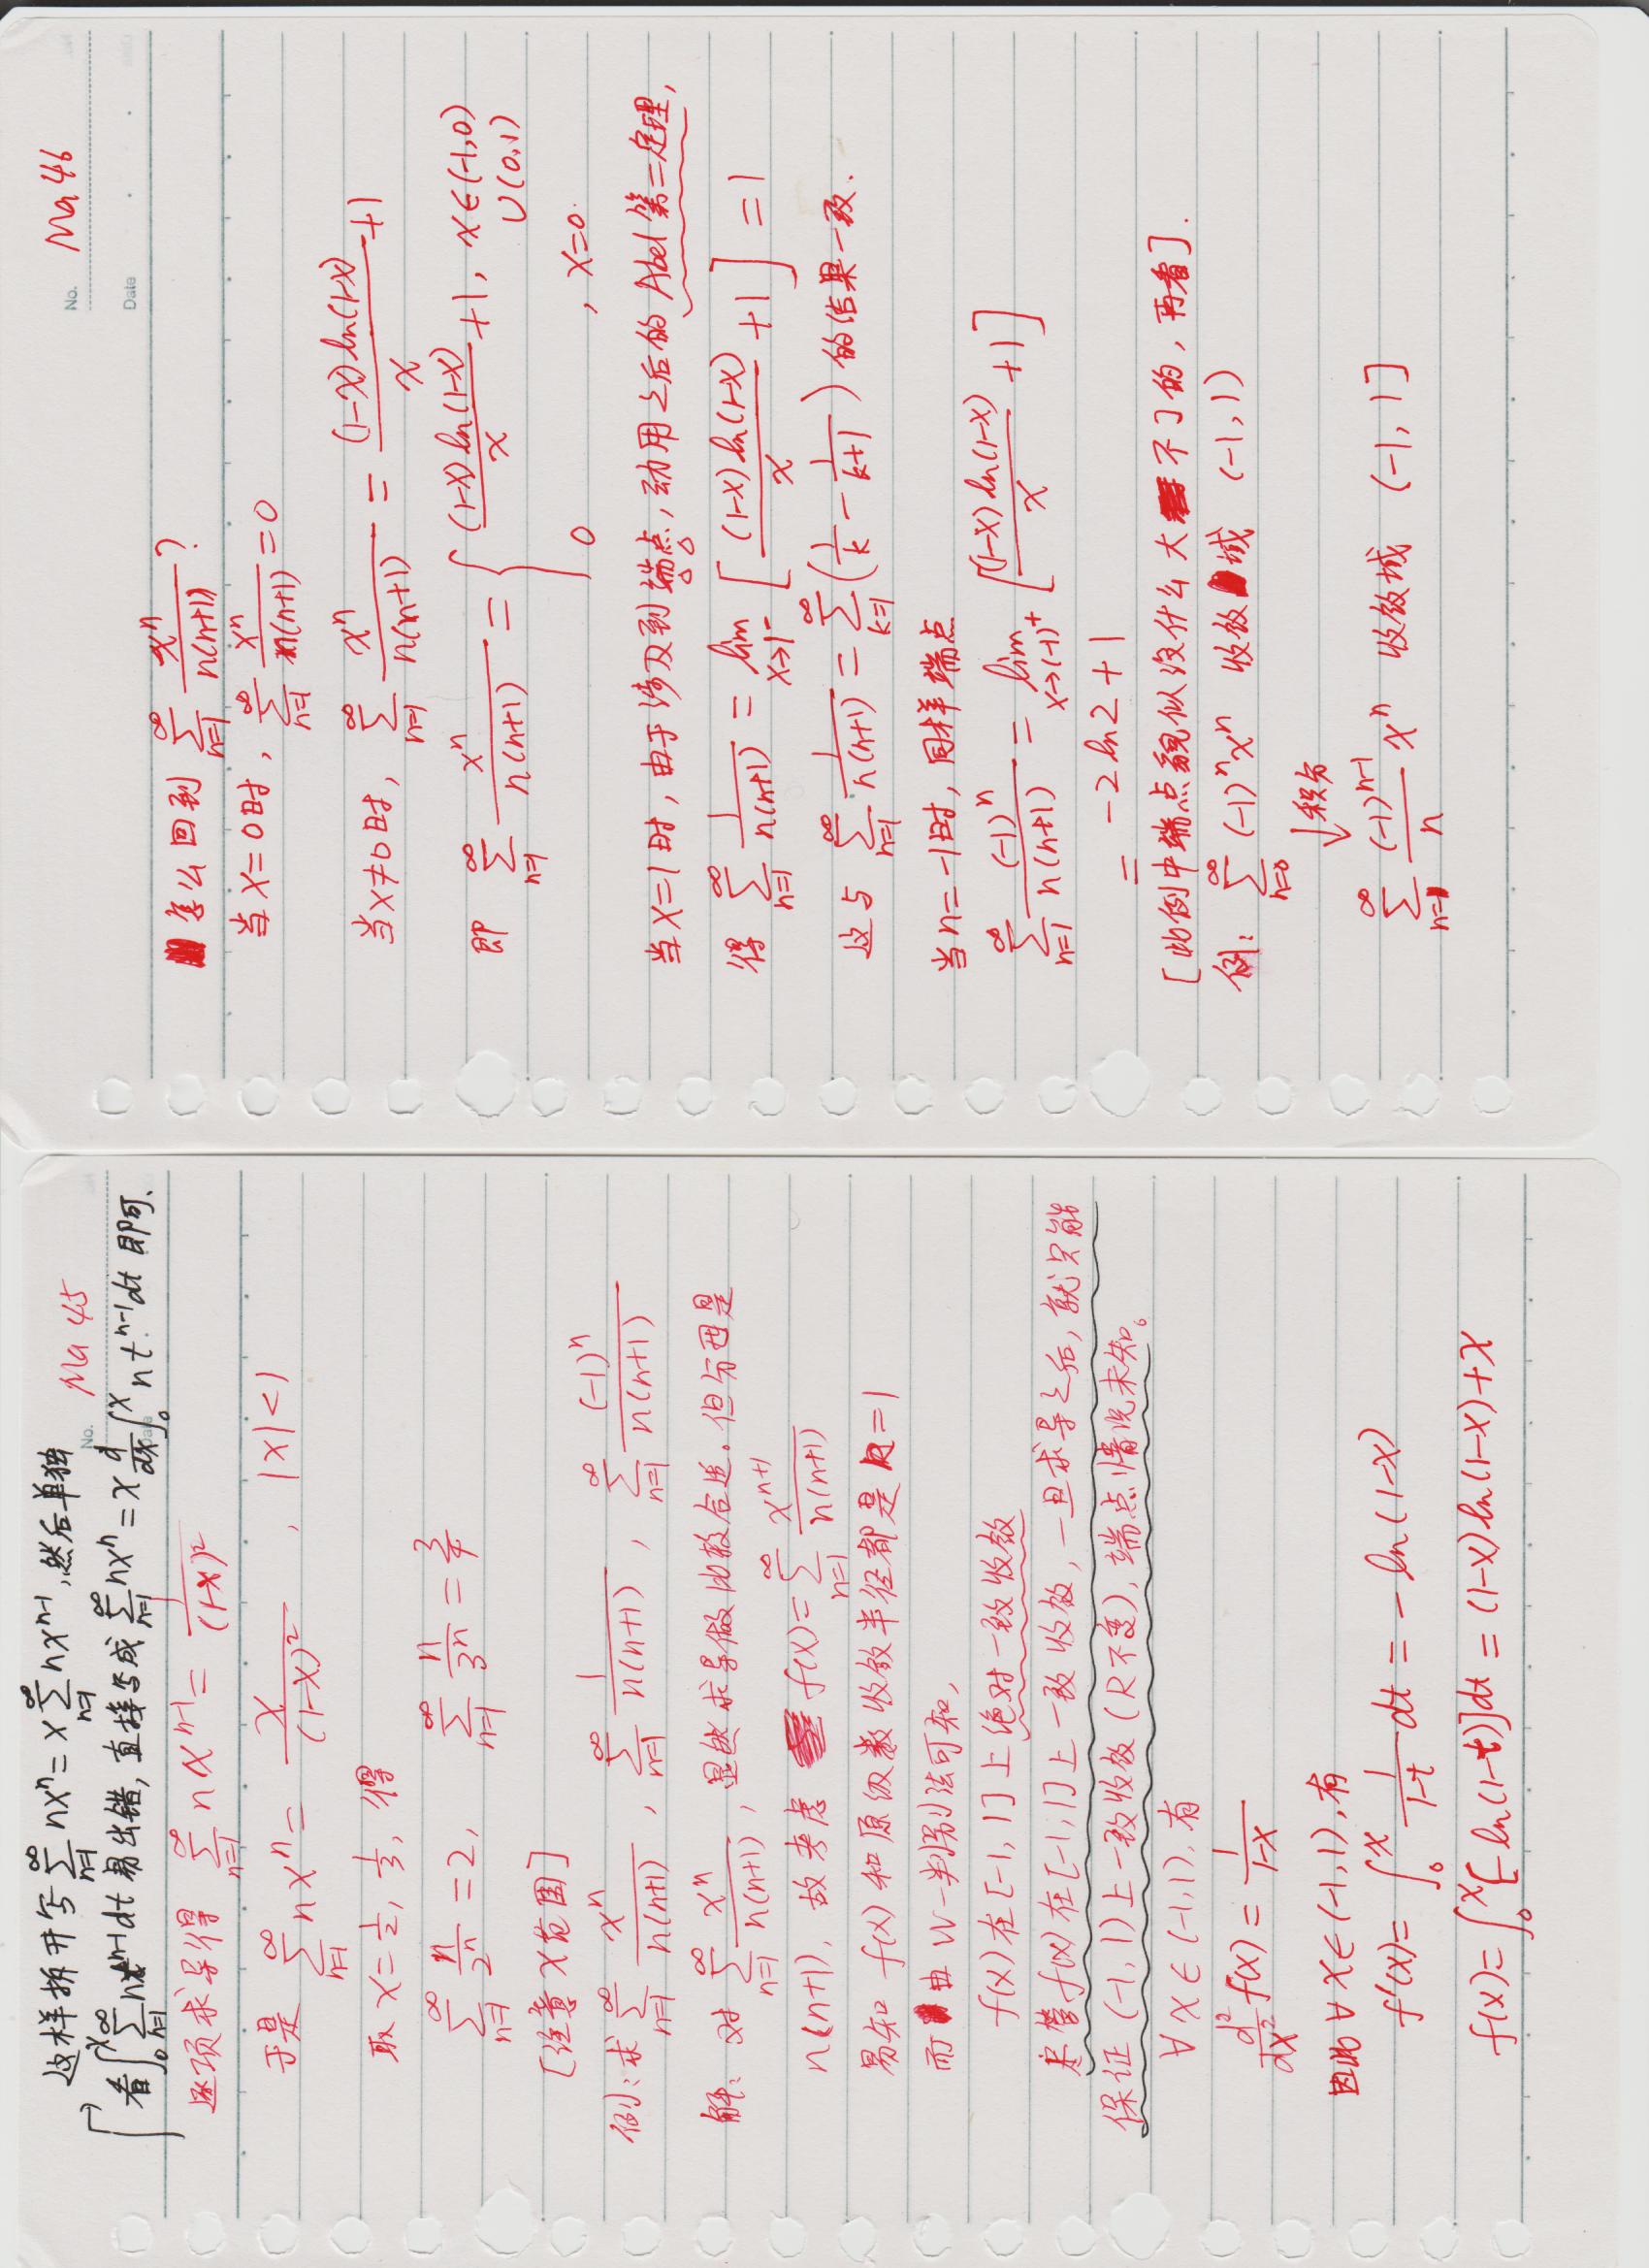 Ma 45
这样拆开写 $\sum_{n=1}^{\infty} nx^n = x\sum_{n=1}^{\infty} nx^{n-1}$, 然后单独
看 $\int_0^x \sum_{n=1}^{\infty} nt^{n-1}dt$ 易出错, 直接写成 $\sum_{n=1}^{\infty} nx^n = x\frac{d}{dx}\int_0^x nt^{n-1}dt$ 即可.
逐项求导得 $\sum_{n=1}^{\infty} nx^{n-1} = \frac{1}{(1-x)^2}$
于是 $\sum_{n=1}^{\infty} nx^n = \frac{x}{(1-x)^2}$, $|x|<1$
取 $x=\frac{1}{2}, \frac{1}{3}$, 得
$\sum_{n=1}^{\infty} \frac{n}{2^n} = 2$, $\sum_{n=1}^{\infty} \frac{n}{3^n} = \frac{3}{4}$
[任意 x 范围]
例: 求 $\sum_{n=1}^{\infty} \frac{x^n}{n(n+1)}$, $\sum_{n=1}^{\infty} \frac{1}{n(n+1)}$, $\sum_{n=1}^{\infty} \frac{(-1)^n}{n(n+1)}$
解: 对 $\sum_{n=1}^{\infty} \frac{x^n}{n(n+1)}$, 显然求导做比较合适。但分母是
n(n+1), 故考虑 $f(x)=\sum_{n=1}^{\infty} \frac{x^{n+1}}{n(n+1)}$
易知 f(x) 和原级数收敛半径都是 R=1
而由 W-判别法可知,
f(x) 在 [-1, 1] 上绝对一致收敛
尽管 f(x) 在 [-1, 1] 上一致收敛, 一旦求导之后, 就只能
保证 (-1, 1) 上一致收敛 (R不变), 端点情况未知。
$\forall x\in(-1,1)$, 有
$\frac{d^2}{dx^2}f(x) = \frac{1}{1-x}$
因此 $\forall x\in(-1,1)$, 有
$f'(x) = \int_0^x \frac{1}{1-t}dt = -\ln(1-x)$
$f(x) = \int_0^x [-\ln(1-t)]dt = (1-x)\ln(1-x)+x$
No. Ma 46
Date
怎么回到 $\sum_{n=1}^{\infty} \frac{x^n}{n(n+1)}$?
当 x=0 时, $\sum_{n=1}^{\infty} \frac{x^n}{n(n+1)} = 0$
当 x≠0 时, $\sum_{n=1}^{\infty} \frac{x^n}{n(n+1)} = \frac{(1-x)\ln(1-x)}{x}+1$
即 $\sum_{n=1}^{\infty} \frac{x^n}{n(n+1)} = \begin{cases} \frac{(1-x)\ln(1-x)}{x}+1, & x\in(-1,0)\cup(0,1) \\ 0, & x=0. \end{cases}$
当 x=1 时, 由于涉及到端点, 动用之后的 Abel 第二定理,
得 $\sum_{n=1}^{\infty} \frac{1}{n(n+1)} = \lim_{x\to 1^-}\left[\frac{(1-x)\ln(1-x)}{x}+1\right] = 1$
这与 $\sum_{n=1}^{\infty} \frac{1}{n(n+1)} = \sum_{k=1}^{\infty}\left(\frac{1}{k}-\frac{1}{k+1}\right)$ 的结果一致.
当 n=-1 时, 同样端点
$\sum_{n=1}^{\infty} \frac{(-1)^n}{n(n+1)} = \lim_{x\to(-1)^+}\left[\frac{(1-x)\ln(1-x)}{x}+1\right]$
= -2ln2+1
[此例中端点貌似没什么大不了的, 再看].
例: $\sum_{n=0}^{\infty} (-1)^n x^n$ 收敛域 (-1, 1)
↓积分
$\sum_{n=1}^{\infty} \frac{(-1)^{n-1}}{n}x^n$ 收敛域 (-1, 1]